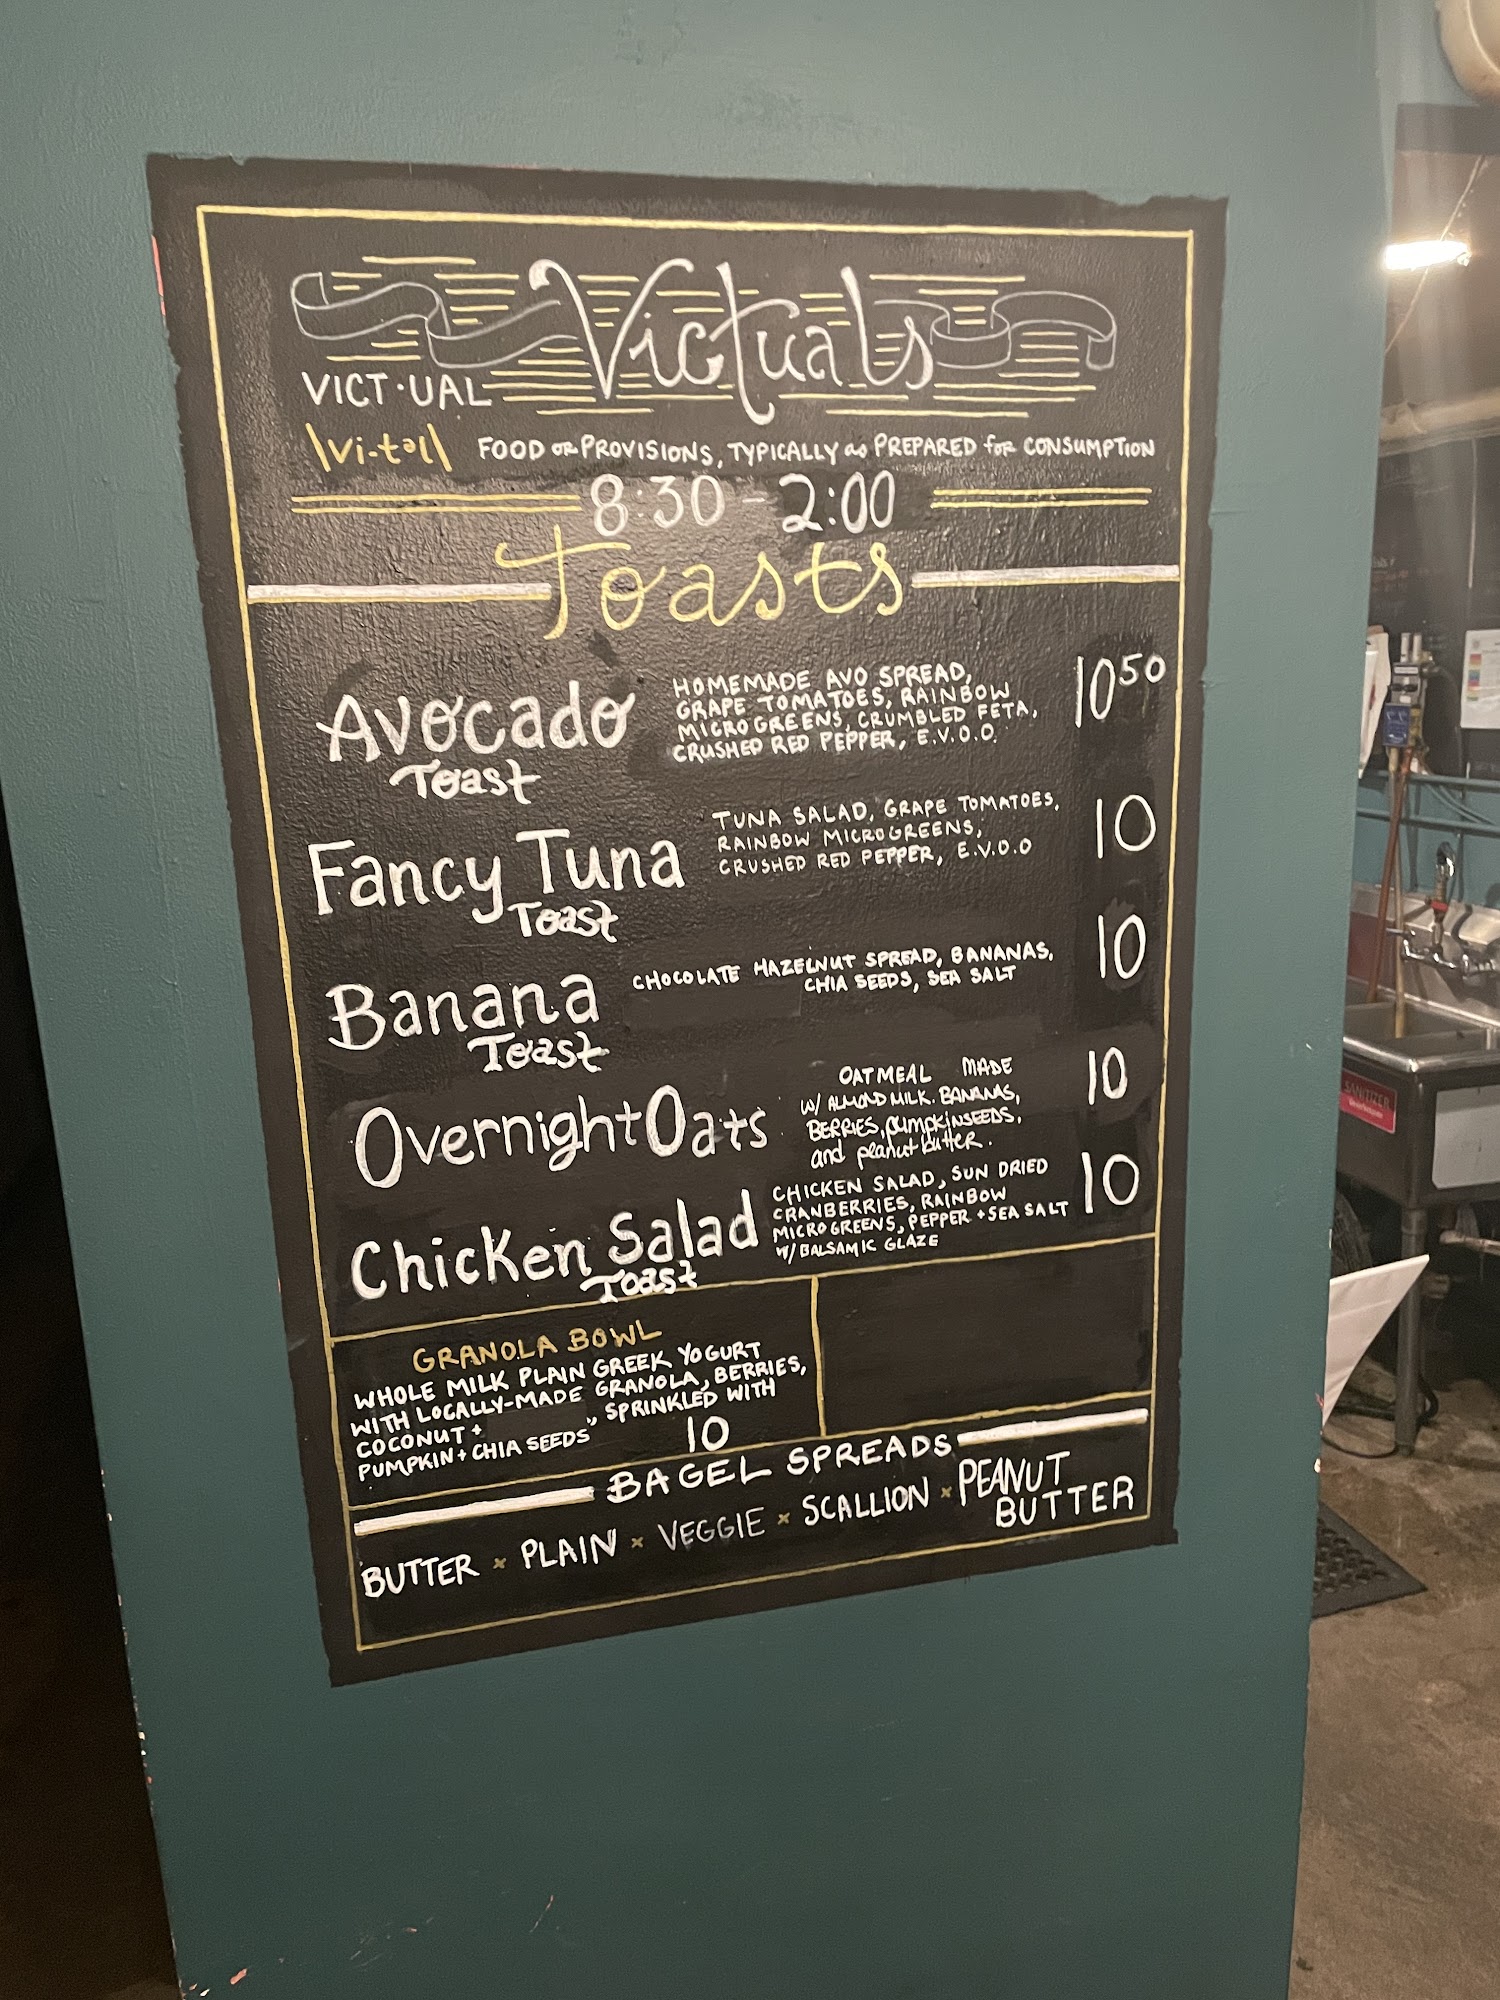 Victuals
VICT·UAL
\Vi-təl\ FOOD OR PROVISIONS, TYPICALLY as PREPARED for CONSUMPTION
8:30 - 2:00
Toasts
Avocado
Toast
HOMEMADE AVO SPREAD,
GRAPE TOMATOES, RAINBOW
MICROGREENS, CRUMBLED FETA,
CRUSHED RED PEPPER, E.V.O.O.
10 50
Fancy Tuna
Toast
TUNA SALAD, GRAPE TOMATOES,
RAINBOW MICROGREENS,
CRUSHED RED PEPPER, E.V.O.O
10
Banana
Toast
CHOCOLATE HAZELNUT SPREAD, BANANAS,
CHIA SEEDS, SEA SALT
10
Overnight Oats
OATMEAL MADE
W/ ALMOND MILK. BANANAS,
BERRIES, pumpkinSEEDS,
and peanut butter.
10
Chicken Salad
Toast
CHICKEN SALAD, SUN DRIED
CRANBERRIES, RAINBOW
MICROGREENS, PEPPER + SEA SALT
W/ BALSAMIC GLAZE
10
GRANOLA BOWL
WHOLE MILK PLAIN GREEK YOGURT
WITH LOCALLY-MADE GRANOLA, BERRIES,
COCONUT + , SPRINKLED WITH
PUMPKIN + CHIA SEEDS
10
BAGEL SPREADS
BUTTER × PLAIN × VEGGIE × SCALLION × PEANUT
BUTTER
SANITIZER